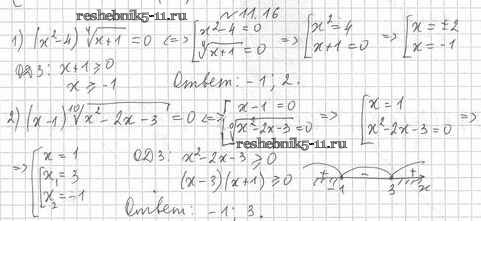 reshebnik5-11.ru № 11.16
1) (x²-4) ⁴√(x+1) = 0 <=> [x²-4=0; ⁴√(x+1) = 0 => [x²=4; x+1=0 => [x=±2; x=-1
ОДЗ: x+1 ≥ 0
x ≥ -1 Ответ: -1; 2.
2) (x-1) ¹⁰√(x²-2x-3) = 0 <=> [x-1=0; ¹⁰√(x²-2x-3)=0 => [x=1; x²-2x-3=0 =>
reshebnik5-11.ru
=> [x=1; [x₁=3; x₂=-1 ОДЗ: x²-2x-3 ≥ 0
(x-3)(x+1) ≥ 0 + -1 - 3 + x
Ответ: -1; 3.